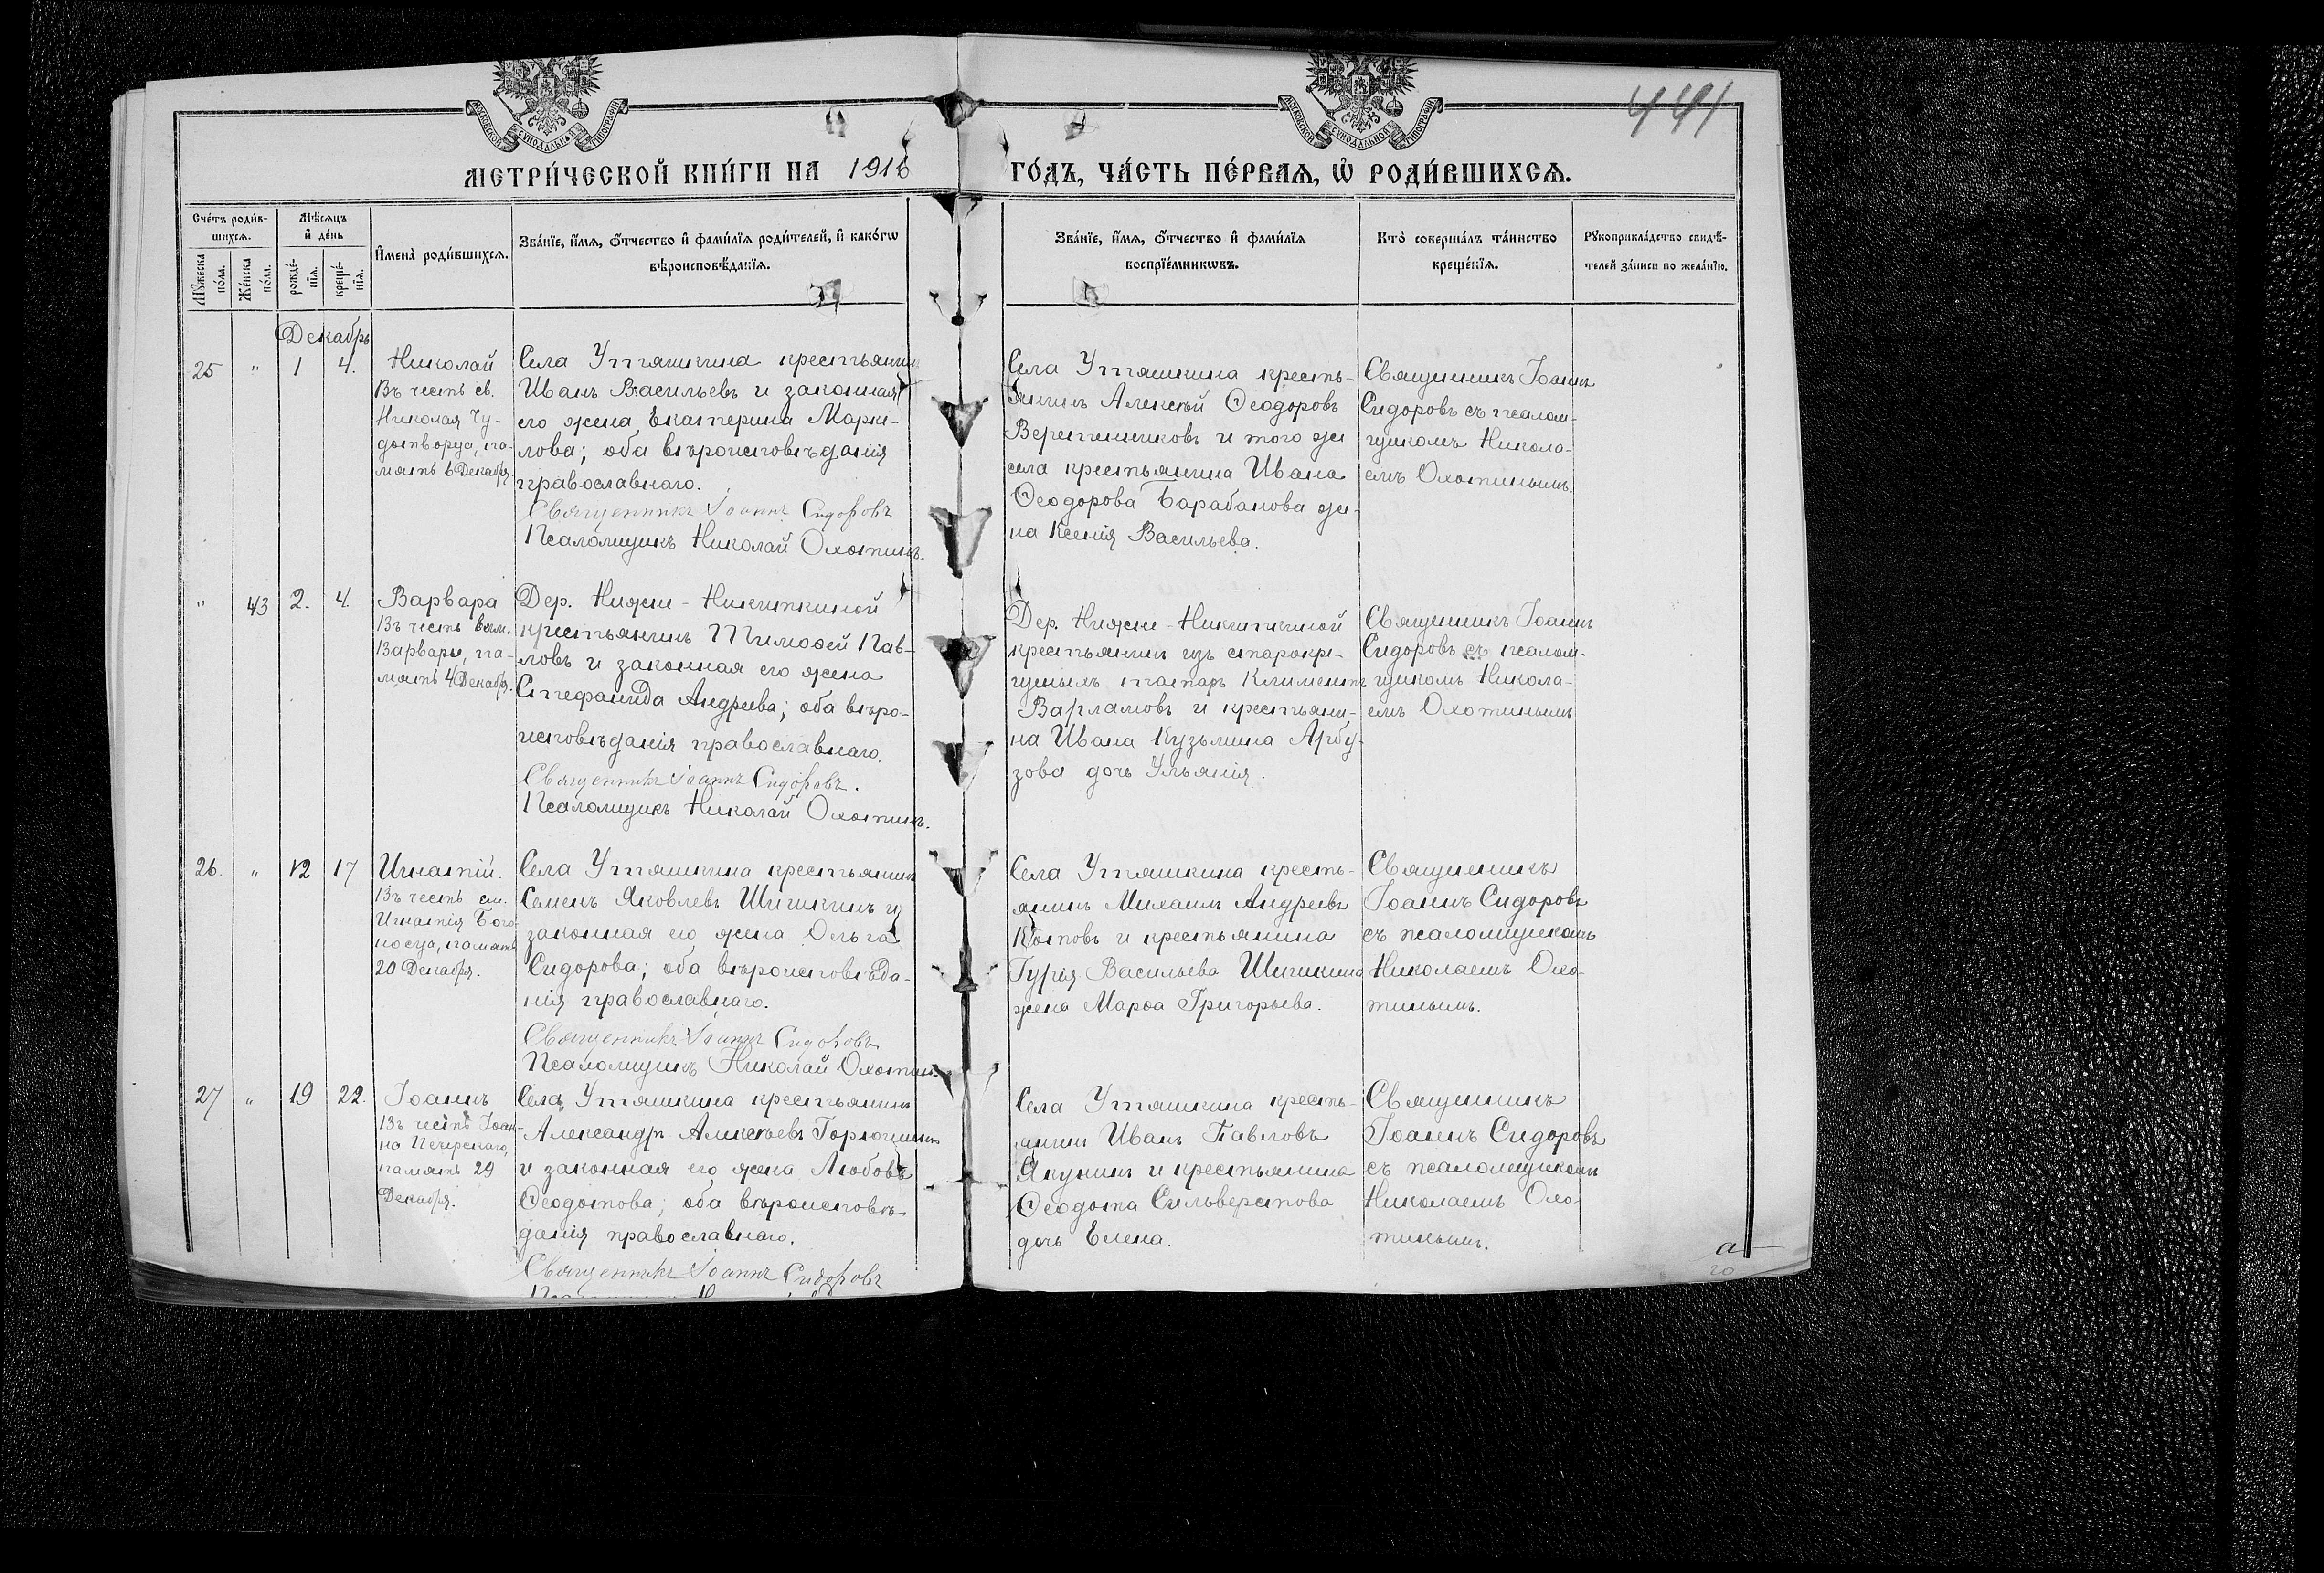 441
МОСКОВСКОЙ СУНОДАЛЬНОЙ ТИПОГРАФІИ
МОСКОВСКОЙ СУНОДАЛЬНОЙ ТИПОГРАФІИ
МЕТРИ́ЧЕСКОЙ КНИ́ГИ НА 1916 ГО́ДЪ, ЧА́СТЬ ПЕ́РВАѦ, Ѡ҆ РОДИ́ВШИХСѦ.
Сче́тъ роди́в-
шихсѧ.
Мꙋ́жеска по́ла.
Же́нска по́ла.
Мѣ́сѧцъ
и҆ де́нь
рожде́-
нїѧ.
креще́-
нїѧ.
И҆мена̀ роди́вшихсѧ.
Зва́нїе, и҆́мѧ, ѻ҆́тчество и҆ фами́лїѧ роди́телей, и҆ како́гѡ
вѣроисповѣ́данїѧ.
Зва́нїе, и҆́мѧ, ѻ҆́тчество и҆ фами́лїѧ
воспрїе́мникѡвъ.
Кто̀ соверша́лъ та́инство
креще́нїѧ.
Рꙋкоприкла́дство свидѣ́-
телей за́писи по жела́нїю.
Декабрь
25 " 1 4.
Николай
Въ честь св.
Николая Чу-
дотворца, па-
мять 6 Декабря.
Села Утяшкина крестьянинъ
Иванъ Васильевъ и законная
его жена Екатерина Марки-
лова; оба вѣроисповѣданія
православнаго.
Священникъ Іоаннъ Сидоровъ
Псаломщикъ Николай Охотинъ.
Села Утяшкина кресть-
янинъ Алексѣй Ѳеодоровъ
Веретенниковъ и того же
села крестьянина Ивана
Ѳеодорова Барабанова же-
на Ксенія Васильева.
Священникъ Іоаннъ
Сидоровъ съ псалом-
щикомъ Никола-
емъ Охотинымъ.
" 43 2. 4.
Варвара
Въ честь влм.
Варвары, па-
мять 4 Декабря.
Дер. Нижне-Никиткиной
крестьянинъ Тимоѳей Пав-
ловъ и законная его жена
Стефанида Андреева; оба вѣро-
исповѣданія православнаго.
Священникъ Іоаннъ Сидоровъ.
Псаломщикъ Николай Охотинъ.
Дер. Нижне-Никиткиной
крестьянинъ изъ старокре-
щеныхъ татаръ Климентъ
Варламовъ и крестьяни-
на Ивана Кузьмина Арбу-
зова дочь Ульянія.
Священникъ Іоаннъ
Сидоровъ съ псалом-
щикомъ Никола-
емъ Охотинымъ
26. " 12 17
Игнатій.
Въ честь см.
Игнатія Бого-
носца, память
20 Декабря.
Села Утяшкина крестьянинъ
Семенъ Яковлевъ Шишкинъ и
законная его жена Ольга
Сидорова; оба вѣроисповѣда-
нія православнаго.
Священникъ Іоаннъ Сидоровъ
Псаломщикъ Николай Охотинъ.
Села Утяшкина кресть-
янинъ Михаилъ Андреевъ
Котовъ и крестьянина
Гурія Васильева Шишкина
жена Марѳа Григорьева.
Священникъ
Іоаннъ Сидоровъ
съ псаломщикомъ
Николаемъ Охо-
тинымъ.
27 " 19 22.
Іоаннъ
Въ честь Іоан-
на Печерскаго,
память 29
Декабря.
Села Утяшкина крестьянинъ
Александръ Алексѣевъ Горючкинъ
и законная его жена Любовь
Ѳеодотова; оба вѣроисповѣ-
данія православнаго.
Священникъ Іоаннъ Сидоровъ
Села Утяшкина кресть-
янинъ Иванъ Павловъ
Якунинъ и крестьянина
Ѳеодота Сильверстова
дочь Елена.
Священникъ
Іоаннъ Сидоровъ
съ псаломщикомъ
Николаемъ Охо-
тинымъ.